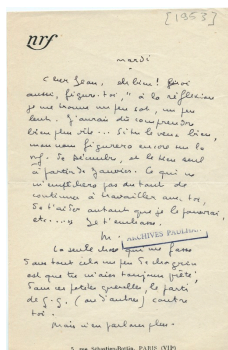 [1953]
nrf
mardi
Cher Jean, eh bien ! moi
aussi, figure-toi, "à la réflexion
je me trouve un peu sot, un peu
lent. J'aurais dû comprendre
bien plus vite... Si tu le veux bien,
mon nom figurera encore sur la
nrf. de Décembre, et le tien seul
à partir de Janvier. Ce qui ne
m'empêchera pas du tout de
continuer à travailler avec toi,
de t'aider autant que je le pourrai,
etc..... Je t'embrasse.
M.
ARCHIVES PAULHAN
La seule chose qui me fasse
dans tout cela un peu de chagrin
est que tu m'aies toujours prêté,
dans ces petites querelles, le parti
de G.G. (ou d'autres) contre
toi.
Mais n'en parlons plus.
5, rue Sébastien-Bottin, PARIS (VIIe)